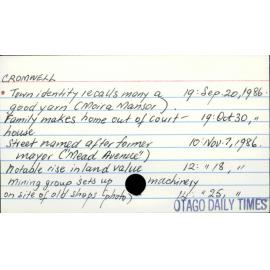 CROMWELL
• Town identity recalls many a 19: Sep. 20, 1986.
good yarn (Moira Mansor).
Family makes home out of court- 19: Oct 30, "
house
Street named after former 10: Nov. 7, 1986.
mayor ("Mead Avenue")
Notable rise in land value 12: " 18, "
Mining group sets up machinery
on site of old shops (photo) 14: " 25, "
OTAGO DAILY TIMES